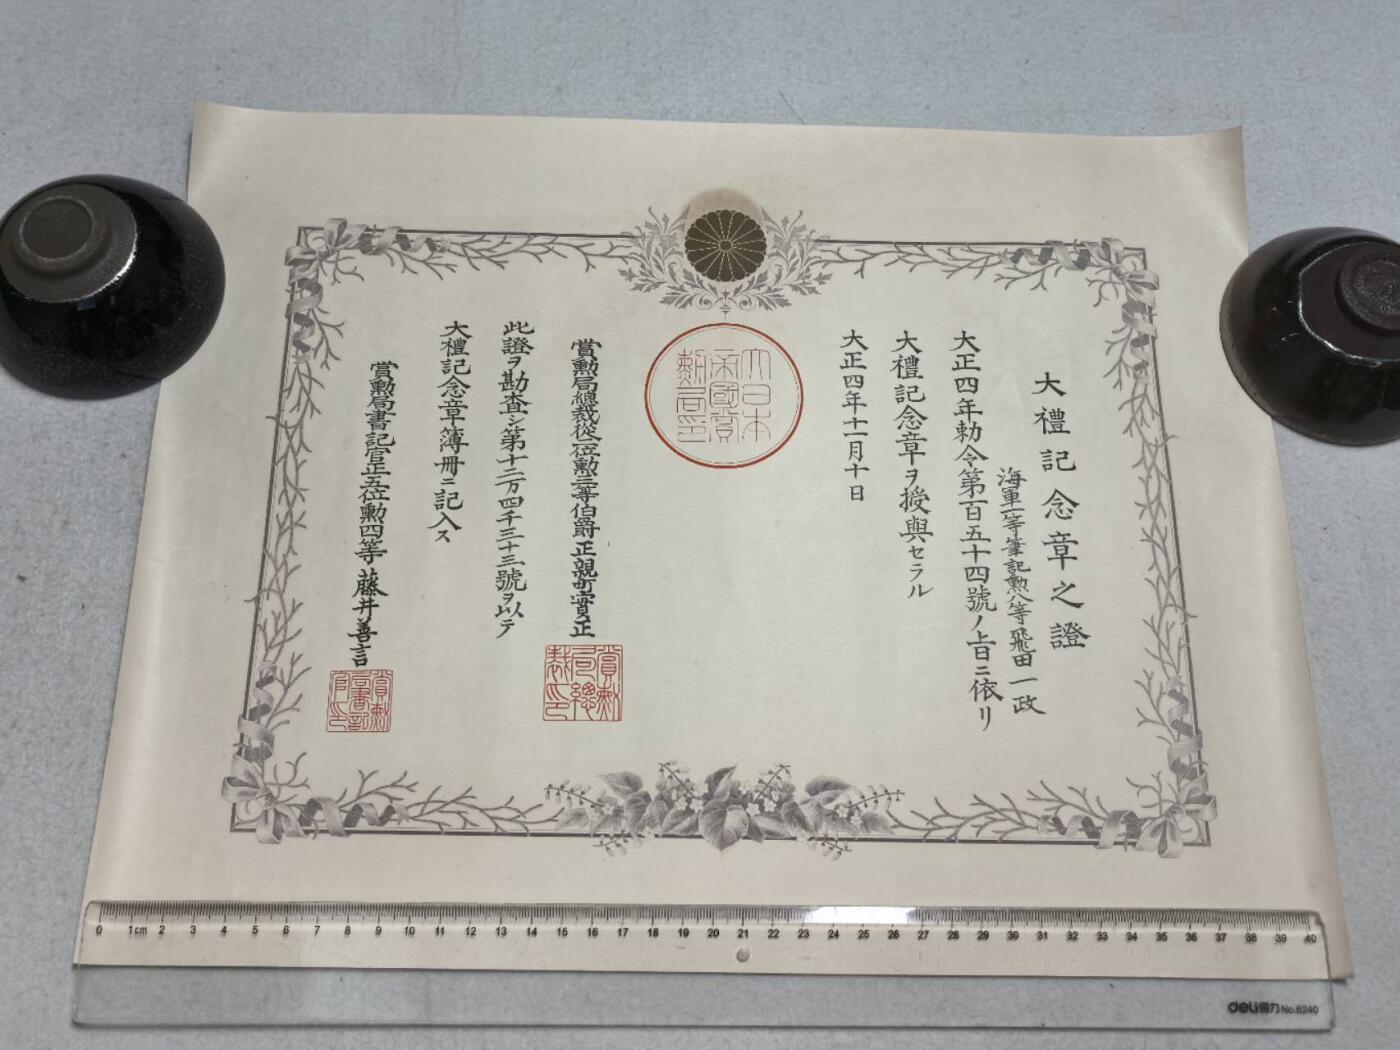 大禮記念章之證
海軍一等筆記勲八等飛田一政
大正四年勅令第百五十四號ノ上旨ニ依リ
大禮記念章ヲ授與セラル
大正四年十一月十日
大日本
帝國賞
勲局印
賞勲局總裁從二位勲三等伯爵正親町實正
賞勲
局總
裁印
此證ヲ勘查シ第十二万四千三十三號ヲ以テ
大禮記念章簿冊ニ記入ス
賞勲局書記官正五位勲四等藤井善言
賞勲
局書記
官印
0 1cm 2 3 4 5 6 7 8 9 10 11 12 13 14 15 16 17 18 19 20 21 22 23 24 25 26 27 28 29 30 31 32 33 34 35 36 37 38 39 40
deli得力 No.6240